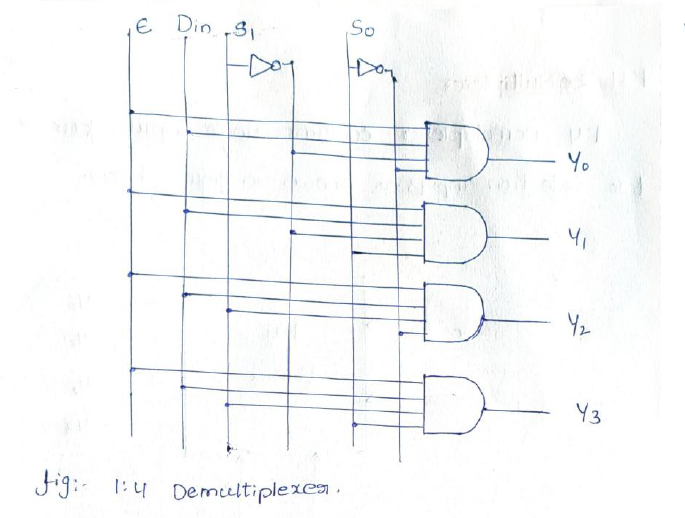 E Din S1 S0
Y0
Y1
Y2
Y3
fig:- 1:4 Demultiplexer.